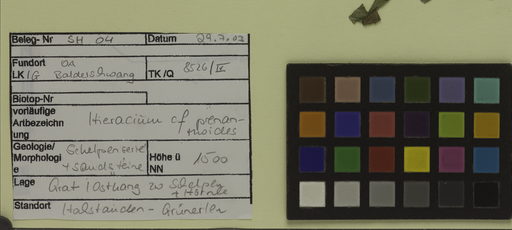 Beleg- Nr SH 04 Datum 29.7.02
Fundort OA
LK/G Balderschwang TK/Q 8526/IV
Biotop-Nr
vorläufige
Artbezeichn Hieracium cf prenan-
ung thoides
Geologie/
Morphologi + Sandsteine Höhe ü 1500
e NN
Lage Grat / Osthang zw
Standort Hochstauden - Grünerlen